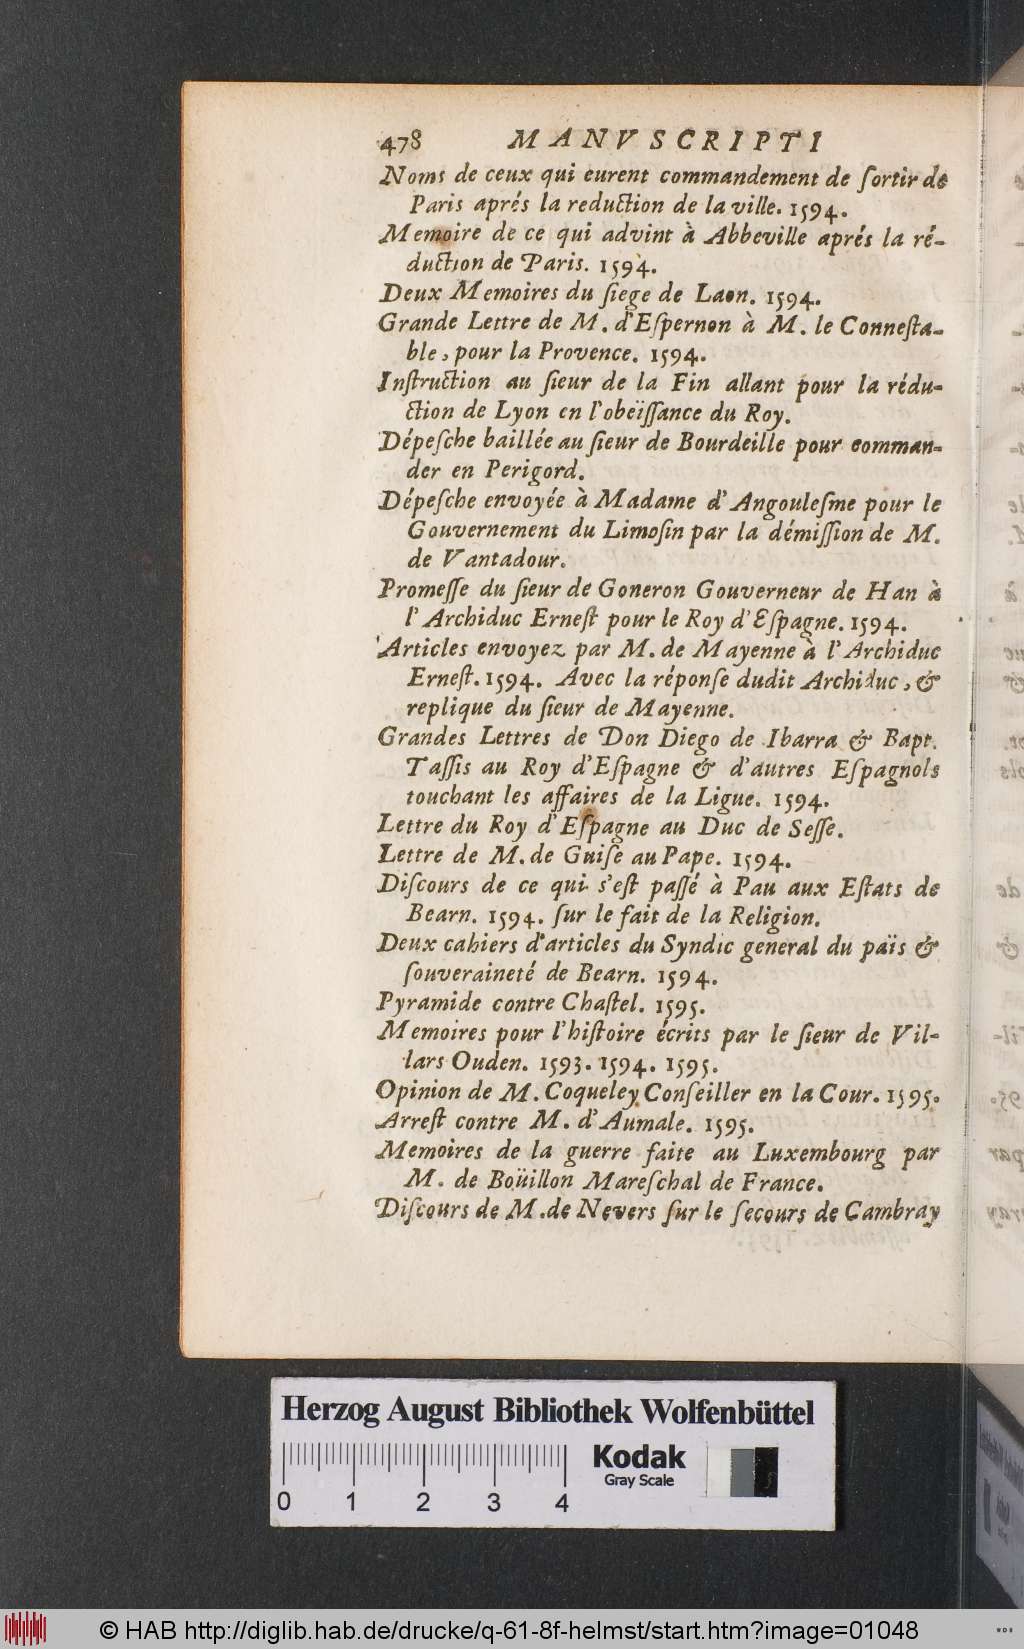 478 MANVSCRIPTI
Noms de ceux qui eurent commandement de ſortir de
Paris aprés la reduction de la ville. 1594.
Memoire de ce qui advint à Abbeville aprés la ré-
duction de Paris. 1594.
Deux Memoires du ſiege de Laon. 1594.
Grande Lettre de M. d'Eſpernon à M. le Conneſta-
ble, pour la Provence. 1594.
Inſtruction au ſieur de la Fin allant pour la rédu-
ction de Lyon en l'obeïſſance du Roy.
Dépeſche baillée au ſieur de Bourdeille pour comman-
der en Perigord.
Dépeſche envoyée à Madame d'Angouleſme pour le
Gouvernement du Limoſin par la démiſſion de M.
de Vantadour.
Promeſſe du ſieur de Goneron Gouverneur de Han à
l'Archiduc Erneſt pour le Roy d'Eſpagne. 1594.
Articles envoyez par M. de Mayenne à l'Archiduc
Erneſt. 1594. Avec la réponſe dudit Archiduc, &
replique du ſieur de Mayenne.
Grandes Lettres de Don Diego de Ibarra & Bapt.
Taſſis au Roy d'Eſpagne & d'autres Eſpagnols
touchant les affaires de la Ligue. 1594.
Lettre du Roy d'Eſpagne au Duc de Seſſe.
Lettre de M. de Guiſe au Pape. 1594.
Diſcours de ce qui s'eſt paſſé à Pau aux Eſtats de
Bearn. 1594. ſur le fait de la Religion.
Deux cahiers d'articles du Syndic general du païs &
ſouveraineté de Bearn. 1594.
Pyramide contre Chaſtel. 1595.
Memoires pour l'hiſtoire écrits par le ſieur de Vil-
lars Ouden. 1593. 1594. 1595.
Opinion de M. Coqueley Conſeiller en la Cour. 1595.
Arreſt contre M. d'Aumale. 1595.
Memoires de la guerre faite au Luxembourg par
M. de Boüillon Mareſchal de France.
Diſcours de M. de Nevers ſur le ſecours de Cambray
Herzog August Bibliothek Wolfenbüttel
Kodak
Gray Scale
0 1 2 3 4
© HAB http://diglib.hab.de/drucke/q-61-8f-helmst/start.htm?image=01048